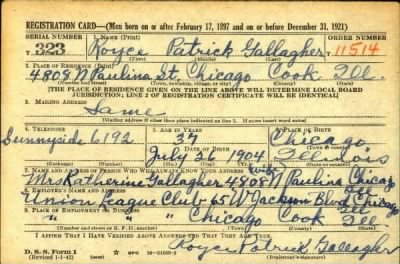 REGISTRATION CARD—(Men born on or after February 17, 1897 and on or before December 31, 1921)
SERIAL NUMBER 1. NAME (Print) ORDER NUMBER
T 323 Royce Patrick Gallagher 11514
(First) (Middle) (Last)
2. PLACE OF RESIDENCE (Print)
4808 N Paulina St. Chicago Cook Ill.
(Number and street) (Town, township, village, or city) (County) (State)
[THE PLACE OF RESIDENCE GIVEN ON THE LINE ABOVE WILL DETERMINE LOCAL BOARD
JURISDICTION; LINE 2 OF REGISTRATION CERTIFICATE WILL BE IDENTICAL]
3. MAILING ADDRESS
Same
[Mailing address if other than place indicated on line 2. If same insert word same]
4. TELEPHONE 5. AGE IN YEARS 6. PLACE OF BIRTH
Sunnyside 6192 37 Chicago
DATE OF BIRTH (Town or county)
July 2 1904 Illinois
(Exchange) (Number) (Mo.) (Day) (Yr.) (State or country)
7. NAME AND ADDRESS OF PERSON WHO WILL ALWAYS KNOW YOUR ADDRESS
wife
Mrs Katherine Gallagher 4808 N Paulina Chicago
Ill
8. EMPLOYER'S NAME AND ADDRESS
Union League Club 65 W Jackson Blvd. Chicago
Ill
9. PLACE OF EMPLOYMENT OR BUSINESS
" " Chicago Cook Ill.
(Number and street or R. F. D. number) (Town) (County) (State)
I AFFIRM THAT I HAVE VERIFIED ABOVE ANSWERS AND THAT THEY ARE TRUE.
D. S. S. Form 1
(Revised 1-1-42) (over) GPO 16—21630-2
Royce Patrick Gallagher